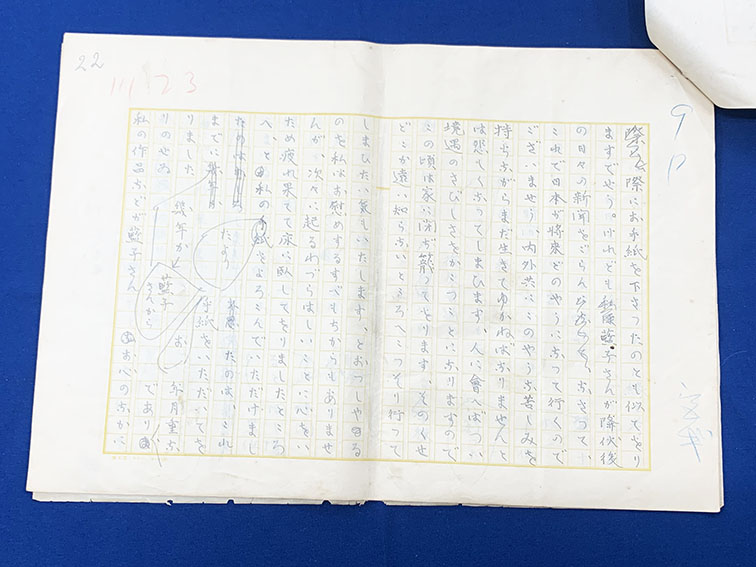 22
111 23
9 P
際に際にお手紙を下さつたのとも似てをり
ますでせう。けれども藍子さんが降伏後
の日々の新聞をごらんになつて、
これで日本が将来どのやうになつて行くので
ございませう、内外共にこのやうな苦しみを
持ちながらまだ生きてゆかねばなりませんと
は悲しくなつてしまひます、人に會へばつい
境遇のさびしさをかこつことになりますので
この頃は家に閉ぢ籠つてをります、そのくせ
どこか遠い知らないところへこつそり行つて
しまひたい気もいたします、とおつしやる
のを私はお慰めするすべもちからもありませ
んが、次々に起るわづらはしいことに心をい
ため疲れ果てて床に臥してをりましたところ
へ、との私の手紙をよろこんでいただけまし
たのは、これ
までに
りました。幾年か お手紙をいただいてを
りのせゐ 藍子さんから お年月重な
私の作品などが藍子さんのお心のなかに
であり